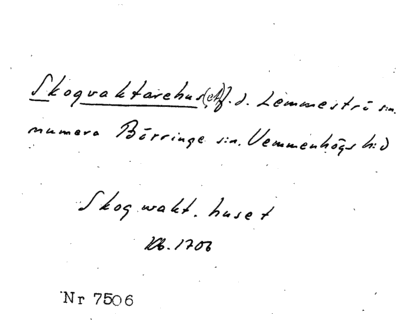 Skogvaktarehus(et) f. d. Lemmeströ sn.
numera Börringe sn. Vemmenhögs hd
Skogwakt. huset
Kb. 1706
Nr 7506